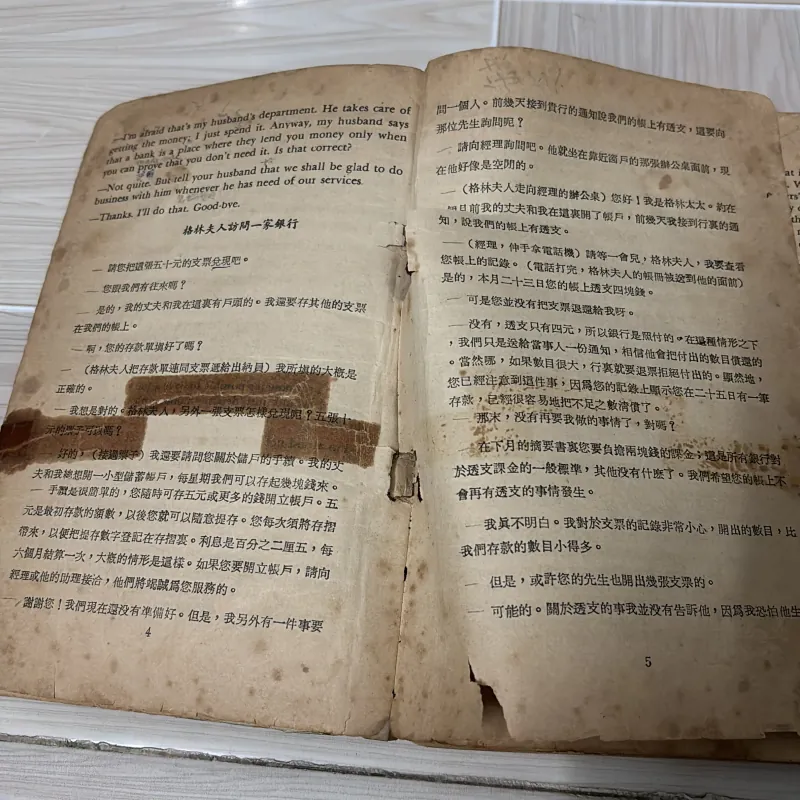 —I'm afraid that's my husband's department. He takes care of
getting the money, I just spend it. Anyway, my husband says
that a bank is a place where they lend you money only when
you can prove that you don't need it. Is that correct?
—Not quite. But tell your husband that we shall be glad to do
business with him whenever he has need of our services.
—Thanks. I'll do that. Good-bye.
格林夫人訪問一家銀行
— 請您把這張五十元的支票兌現吧。
— 您跟我們有往來嗎？
— 是的，我的丈夫和我在這裏有戶頭的。我還要存其他的支票
在我們的帳上。
— 啊，您的存款單填好了嗎？
— （格林夫人把存款單連同支票遞給出納員）我所填的大概是
正確的。
— 我想是對的。格林夫人，另外一張支票怎樣兌現呢？五張十
元的票子可以嗎？
好的，（接過票子）我還要請問您關於儲戶的手續。我的丈
夫和我想開一小型儲蓄帳戶，每星期我們可以存起幾塊錢來。
— 手續是很簡單的，您隨時可存五元或更多的錢開立帳戶。五
元是最初存款的額數，以後您就可以隨意提存。您每次須將存摺
帶來，以便把提存數字登記在存摺裏。利息是百分之二厘五，每
六個月結算一次，大概的情形是這樣。如果您要開立帳戶，請向
經理或他的助理接洽，他們將竭誠爲您服務的。
— 謝謝您！我們現在還沒有準備好。但是，我另外有一件事要
4
問一個人。前幾天接到貴行的通知說我們的帳上有透支，這要向
那位先生詢問呢？
— 請向經理詢問吧。他就坐在靠近窗戶的那張辦公桌面前，現
在他好像是空閒的。
— （格林夫人走向經理的辦公桌）您好！我是格林太太。約在
個月前我的丈夫和我在這裏開了帳戶，前幾天我接到行裏的通
知，說我們的帳上有透支。
— （經理，伸手拿電話機）請等一會兒，格林夫人，我要查看
您帳上的記錄。（電話打完，格林夫人的帳冊被送到他的面前）
是的，本月二十三日您的帳上透支四塊錢。
— 可是您並没有把支票退還給我呀。
— 没有，透支只有四元，所以銀行是照付的。在這種情形之下
，我們只是送給當事人一份通知，相信他會把付出的數目償還的
。當然哪，如果數目很大，行裏就要退票拒絕付出的。顯然地，
您已經注意到這件事，因爲您的記錄上顯示您在二十五日有一筆
存款，已經很容易地把不足之數清償了。
— 那末，没有再要我做的事情了，對嗎？
— 在下月的摘要書裏您要負擔兩塊錢的課金；這是所有銀行對
於透支課金的一般標準，其他没有什麼了。我們希望您的帳上不
會再有透支的事情發生。
— 我眞不明白。我對於支票的記錄非常小心，開出的數目，比
我們存款的數目小得多。
— 但是，或許您的先生也開出幾張支票的。
— 可能的。關於透支的事我並没有告訴他，因爲我恐怕他生
5